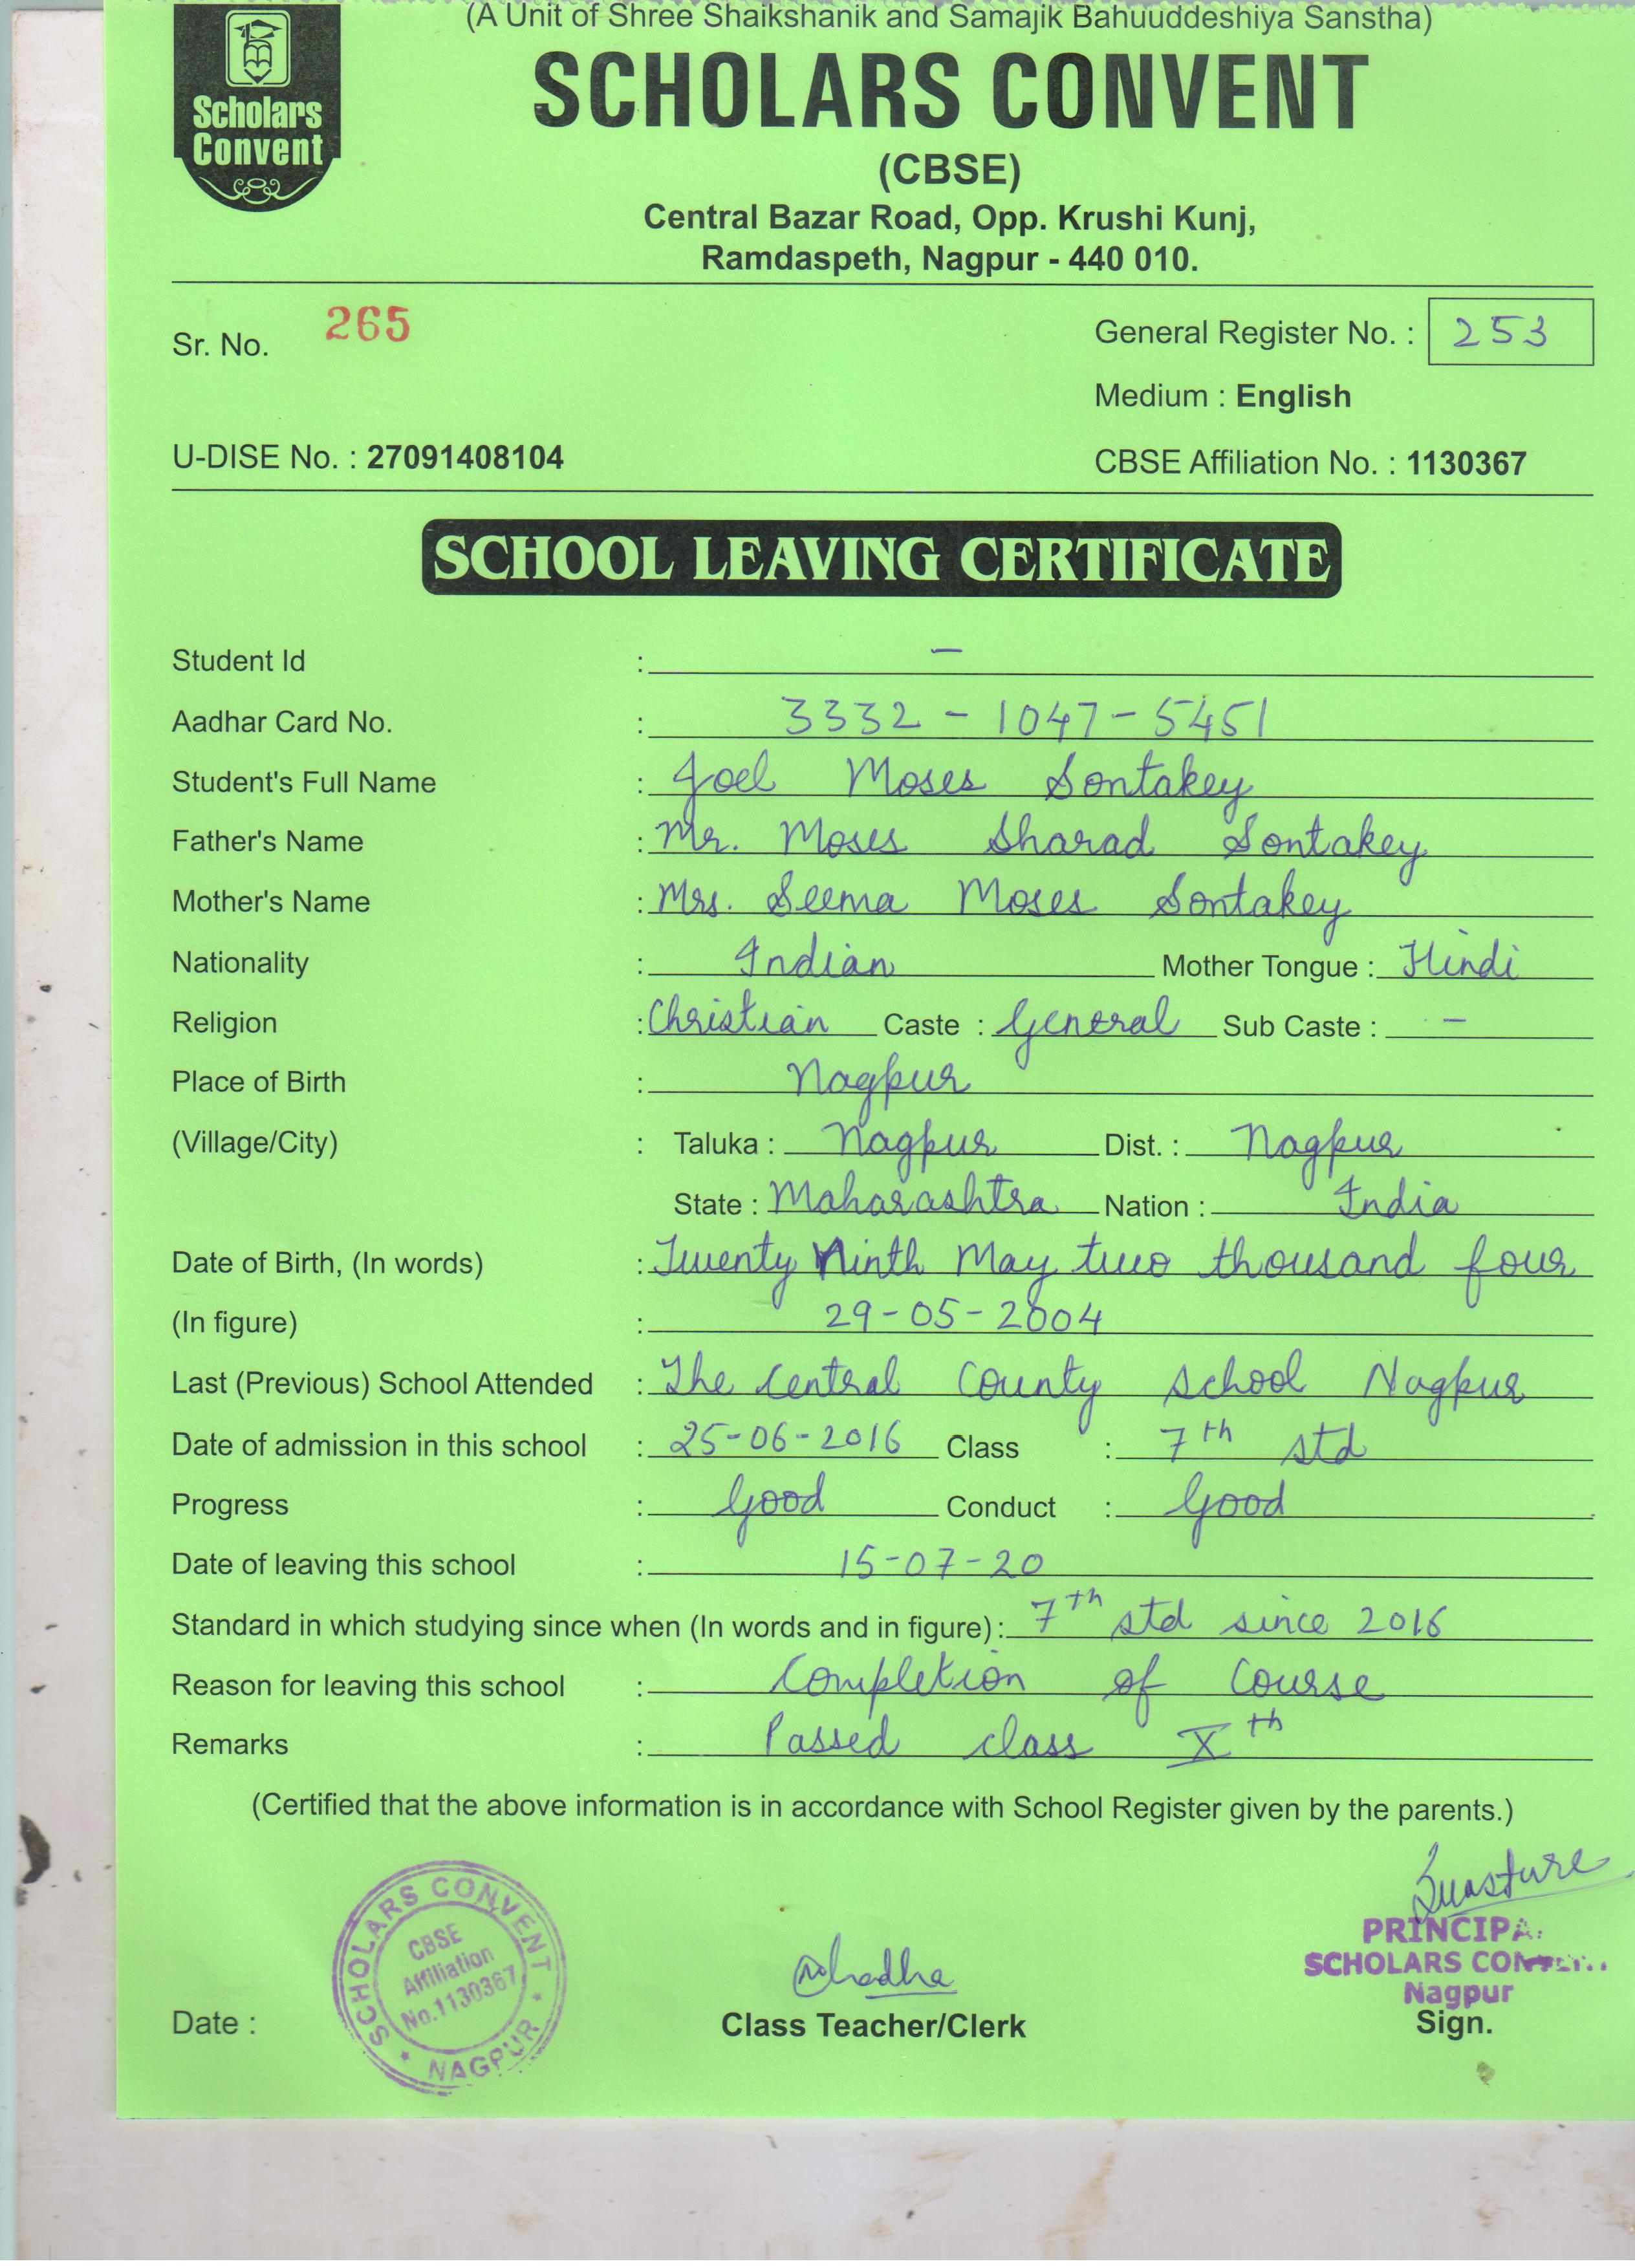 (A Unit of Shree Shaikshanik and Samajik Bahuuddeshiya Sanstha)
Scholars
Convent
SCHOLARS CONVENT
(CBSE)
Central Bazar Road, Opp. Krushi Kunj,
Ramdaspeth, Nagpur - 440 010.
Sr. No. 265
General Register No. : 253
Medium : English
U-DISE No. : 27091408104
CBSE Affiliation No. : 1130367
SCHOOL LEAVING CERTIFICATE
Student Id : -
Aadhar Card No. : 3332 - 1047 - 5451
Student's Full Name : Joel Moses Sontakey
Father's Name : Mr. Moses Sharad Sontakey
Mother's Name : Mrs. Seema Moses Sontakey
Nationality : Indian Mother Tongue : Hindi
Religion : Christian Caste : General Sub Caste : -
Place of Birth : Nagpur
(Village/City) : Taluka : Nagpur Dist. : Nagpur
State : Maharashtra Nation : India
Date of Birth, (In words) : Twenty Ninth May two thousand four
(In figure) : 29-05-2004
Last (Previous) School Attended : The Central County School Nagpur
Date of admission in this school : 25-06-2016 Class : 7th std
Progress : Good Conduct : Good
Date of leaving this school : 15-07-20
Standard in which studying since when (In words and in figure) : 7th std since 2016
Reason for leaving this school : Completion of Course
Remarks : Passed class Xth
(Certified that the above information is in accordance with School Register given by the parents.)
SCHOLARS CONVENT
CBSE
Affiliation
No.1130367
* NAGPUR *
PRINCIPA
SCHOLARS CONVENT
Nagpur
Date :
Class Teacher/Clerk
Sign.